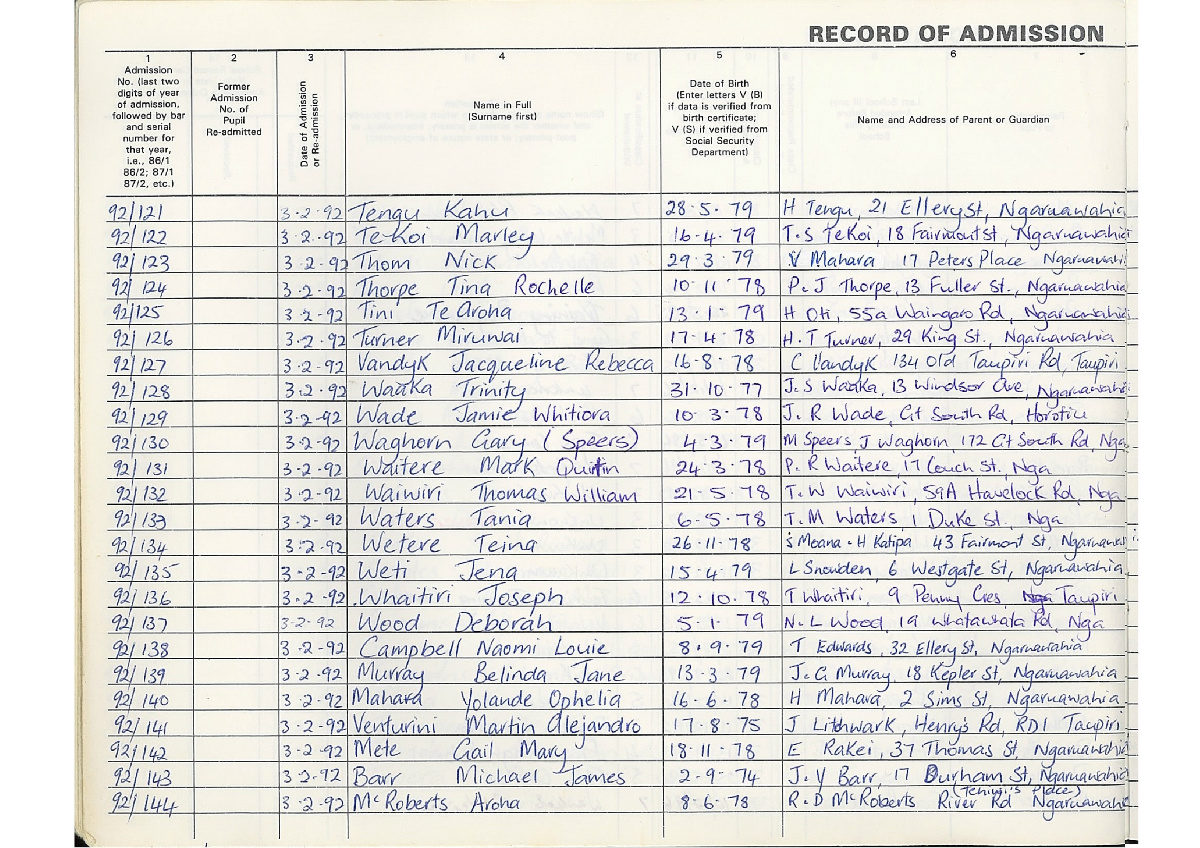 RECORD OF ADMISSION
1 2 3 4 5 6
Admission No. (last two digits of year of admission, followed by bar and serial number for that year, i.e., 86/1 86/2; 87/1 87/2, etc.)
Former Admission No. of Pupil Re-admitted
Date of Admission or Re-admission
Name in Full (Surname first)
Date of Birth (Enter letters V (B) if data is verified from birth certificate; V (S) if verified from Social Security Department)
Name and Address of Parent or Guardian
92/121 3·2·92 Tengu Kahu 28·5·79 H Tengu, 21 Ellery St, Ngaruawahia
92/122 3·2·92 TeKoi Marley 16·4·79 T.S TeKoi, 18 Fairmont st, Ngaruawahia
92/123 3·2·92 Thom Nick 29·3·79 V Mahara 17 Peters Place Ngaruawahi
92/124 3·2·92 Thorpe Tina Rochelle 10·11·78 P.J Thorpe, 13 Fuller St., Ngaruawahia
92/125 3·2·92 Tini Te Aroha 13·1·79 H Oti, 55a Waingaro Rd, Ngaruawahia
92/126 3·2·92 Turner Miruwai 17·4·78 H.T Turner, 29 King St., Ngaruawahia
92/127 3·2·92 Vandyk Jacqueline Rebecca 16·8·78 C Vandyk 134 Old Taupiri Rd, Taupiri
92/128 3·2·92 Waaka Trinity 31·10·77 J.S Waaka, 13 Windsor Ave, Ngaruawahia
92/129 3·2·92 Wade Jamie Whitiora 10·3·78 J.R Wade, Gt South Rd, Horotiu
92/130 3·2·92 Waghorn Gary (Speers) 4·3·79 M Speers, J Waghorn, 172 Gt South Rd, Nga
92/131 3·2·92 Waitere Mark Quintin 24·3·78 P.R Waitere, 17 Couch St. Nga
92/132 3·2·92 Waiwiri Thomas William 21·5·78 T.W Waiwiri, 59A Havelock Rd, Nga
92/133 3·2·92 Waters Tania 6·5·78 T.M Waters, 1 Duke St. Nga
92/134 3·2·92 Wetere Teina 26·11·78 S Moana · H Katipa 43 Fairmont St, Ngaruawahi
92/135 3·2·92 Weti Jena 15·4·79 L Snowden, 6 Westgate St, Ngaruawahia
92/136 3·2·92 Whaitiri Joseph 12·10·78 T Whaitiri, 9 Penny Cres, Taupiri
92/137 3·2·92 Wood Deborah 5·1·79 N.L Wood, 19 Whatawhata Rd, Nga
92/138 3·2·92 Campbell Naomi Louie 8·9·79 T Edwards, 32 Ellery St, Ngaruawahia
92/139 3·2·92 Murray Belinda Jane 13·3·79 J.G Murray, 18 Kepler St, Ngaruawahia
92/140 3·2·92 Mahara Yolande Ophelia 16·6·78 H Mahara, 2 Sims St, Ngaruawahia
92/141 3·2·92 Venturini Martin Alejandro 17·8·75 J Lithwark, Henry's Rd, RD1 Taupiri
92/142 3·2·92 Mete Gail Mary 18·11·78 E Rakei, 37 Thomas St, Ngaruawahia
92/143 3·2·92 Barr Michael James 2·9·74 J.V Barr, 17 Durham St, Ngaruawahia
92/144 3·2·92 McRoberts Aroha 8·6·78 R.D McRoberts River Rd Ngaruawahia